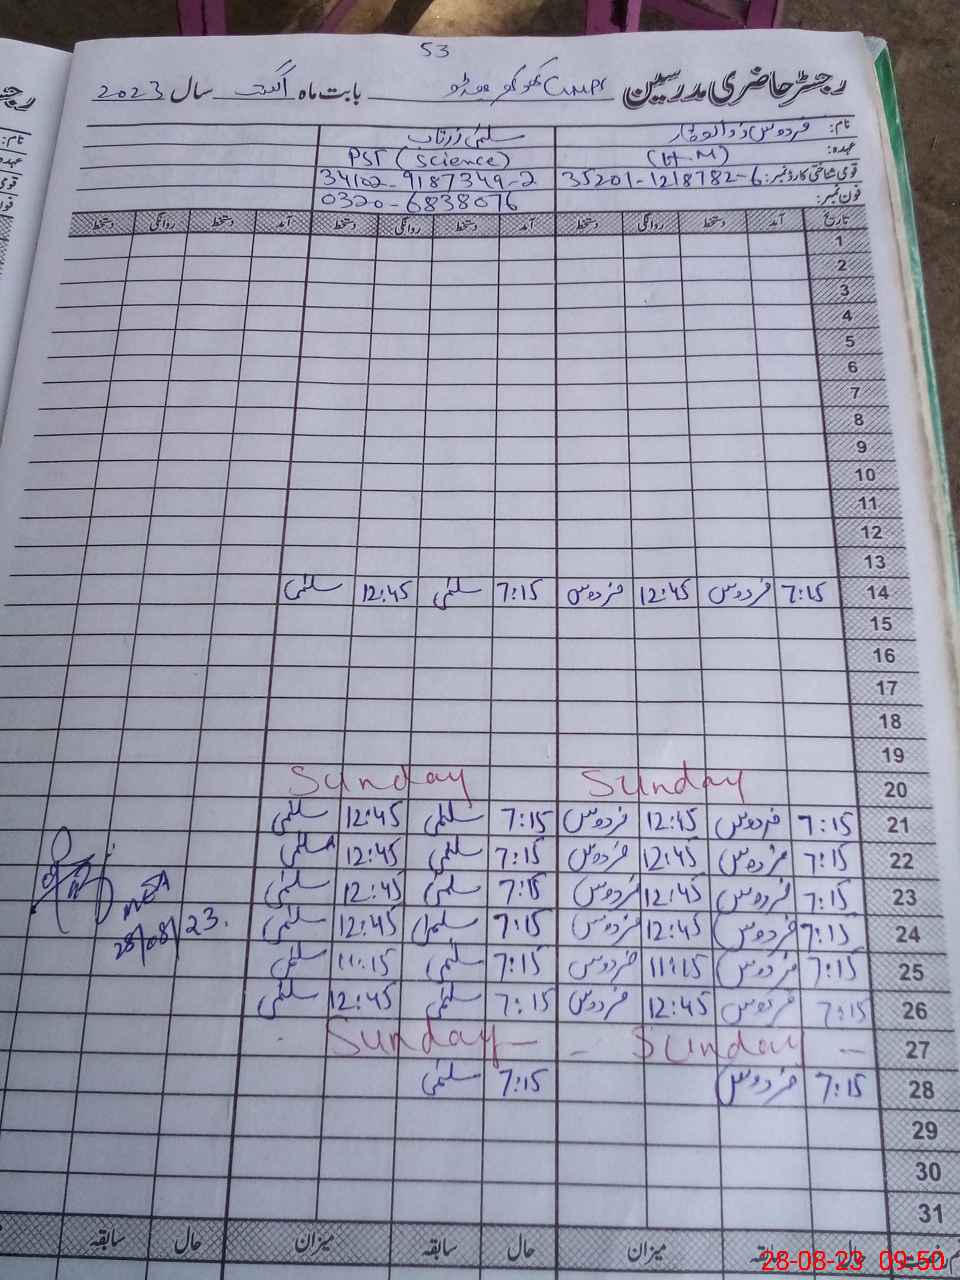 53
رجسٹر حاضری مدرسین GMPS کھوکھر بابت ماہ اگست سال 2023
نام: فردوس سلمیٰ زرتاب
عہدہ: (H.M) PST (Science)
قومی شناختی کارڈ نمبر: 35201-1218782-6 34102-9187349-2
فون نمبر: 0320-6838076
تاریخ آمد دستخط روانگی دستخط آمد دستخط روانگی دستخط آمد دستخط روانگی دستخط
1
2
3
4
5
6
7
8
9
10
11
12
13
14 7:15 فردوس 12:45 فردوس 7:15 سلمیٰ 12:45 سلمیٰ
15
16
17
18
19
20 Sunday Sunday
21 7:15 فردوس 12:45 فردوس 7:15 سلمیٰ 12:45 سلمیٰ
22 7:15 فردوس 12:45 فردوس 7:15 سلمیٰ 12:45 سلمیٰ
23 7:15 فردوس 12:45 فردوس 7:15 سلمیٰ 12:45 سلمیٰ
24 7:15 فردوس 12:45 فردوس 7:15 سلمیٰ 12:45 سلمیٰ
25 7:15 فردوس 11:15 فردوس 7:15 سلمیٰ 11:15 سلمیٰ
26 7:15 فردوس 12:45 فردوس 7:15 سلمیٰ 12:45 سلمیٰ
27 Sunday Sunday
28 7:15 فردوس 7:15 سلمیٰ
28/08/23.
29
30
31
رخصت حال سابقہ میزان حال سابقہ میزان حال سابقہ
28-08-23 09:50